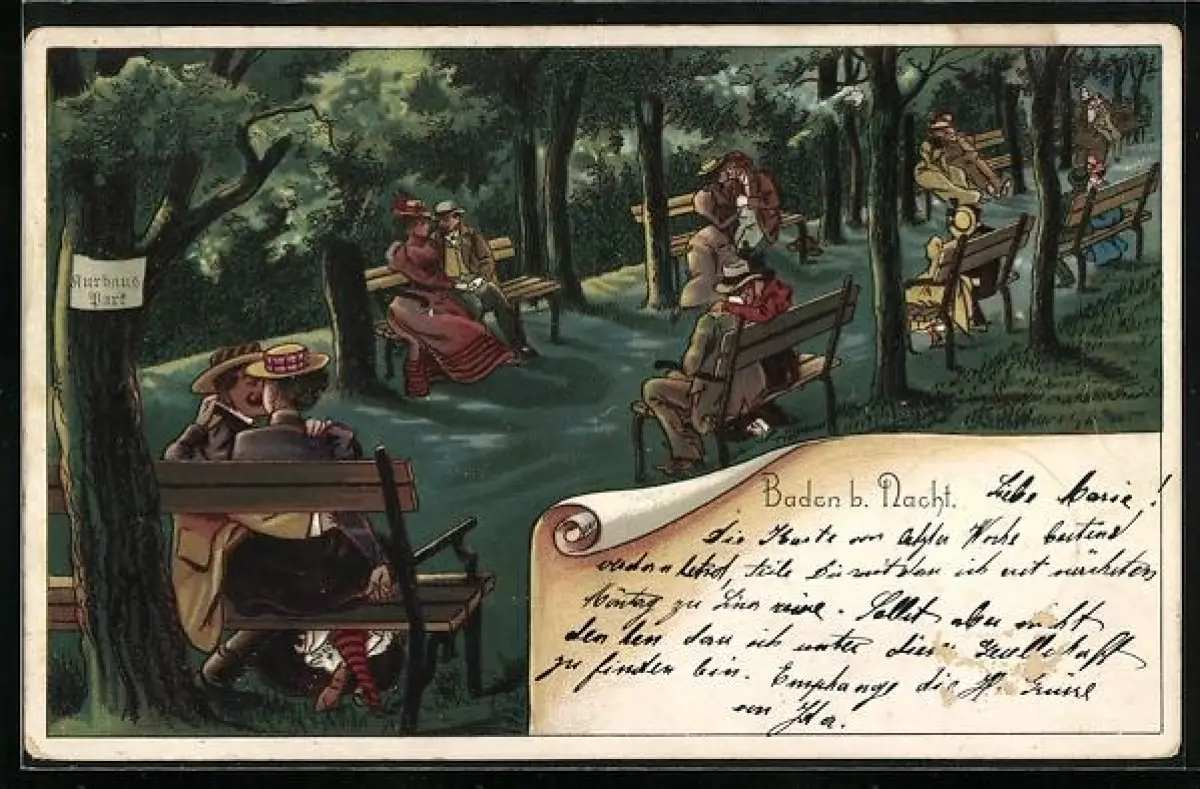 Kurhaus
Park
Baden b. Nacht.
Liebe Marie!
die Karte von letzter Woche bestens
verdankend, teile Dir mit dass ich mit nächsten
Montag zu Lina reise. Sollst aber nicht
denken dass ich unter dieser Gesellschaft
zu finden bin. Empfange die Grüsse
von Ida.